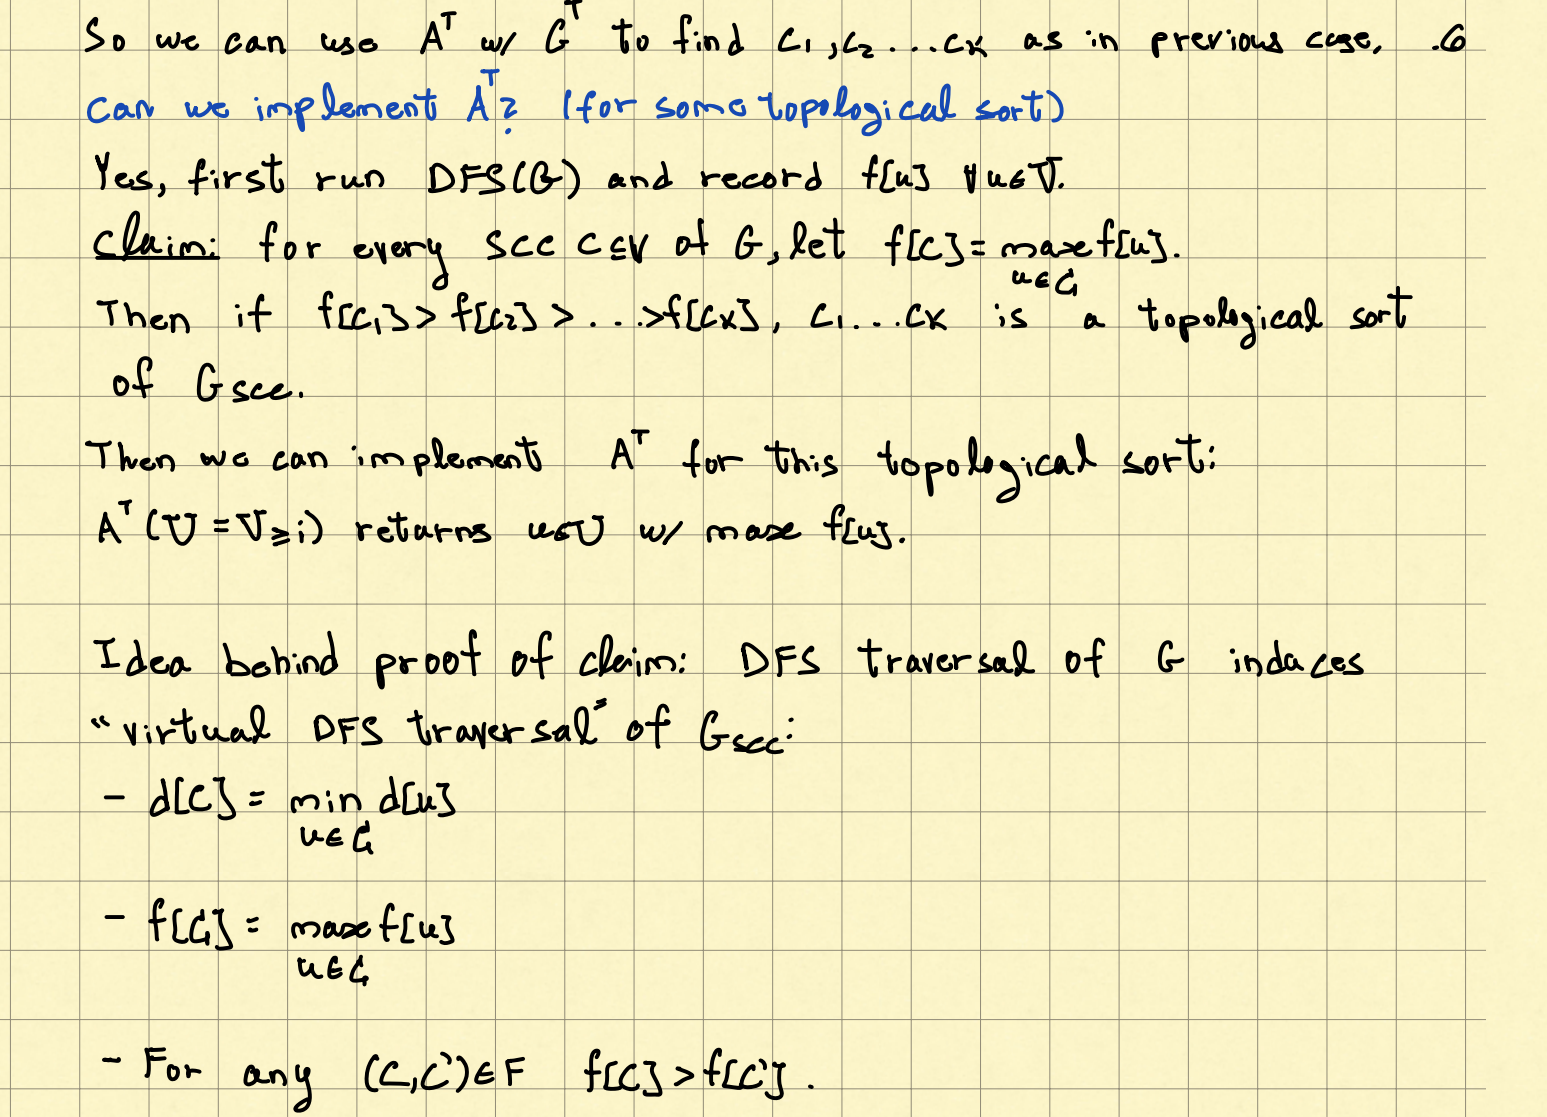 So we can use Aᵀ w/ Gᵀ to find C₁,C₂...Cₖ as in previous case. .6
Can we implement Aᵀ? (for some topological sort)
Yes, first run DFS(G) and record f[u] ∀u∈V.
Claim: for every SCC C⊆V of G, let f[C]= max f[u].
u∈C
Then if f[C₁]>f[C₂]>...>f[Cₖ], C₁...Cₖ is a topological sort
of Gscc.
Then we can implement Aᵀ for this topological sort:
Aᵀ(U=V≥i) returns u∈U w/ max f[u].
Idea behind proof of claim: DFS traversal of G induces
"virtual DFS traversal" of Gscc:
- d[C]= min d[u]
u∈C
- f[C]= max f[u]
u∈C
- For any (C,C')∈F f[C]>f[C'].